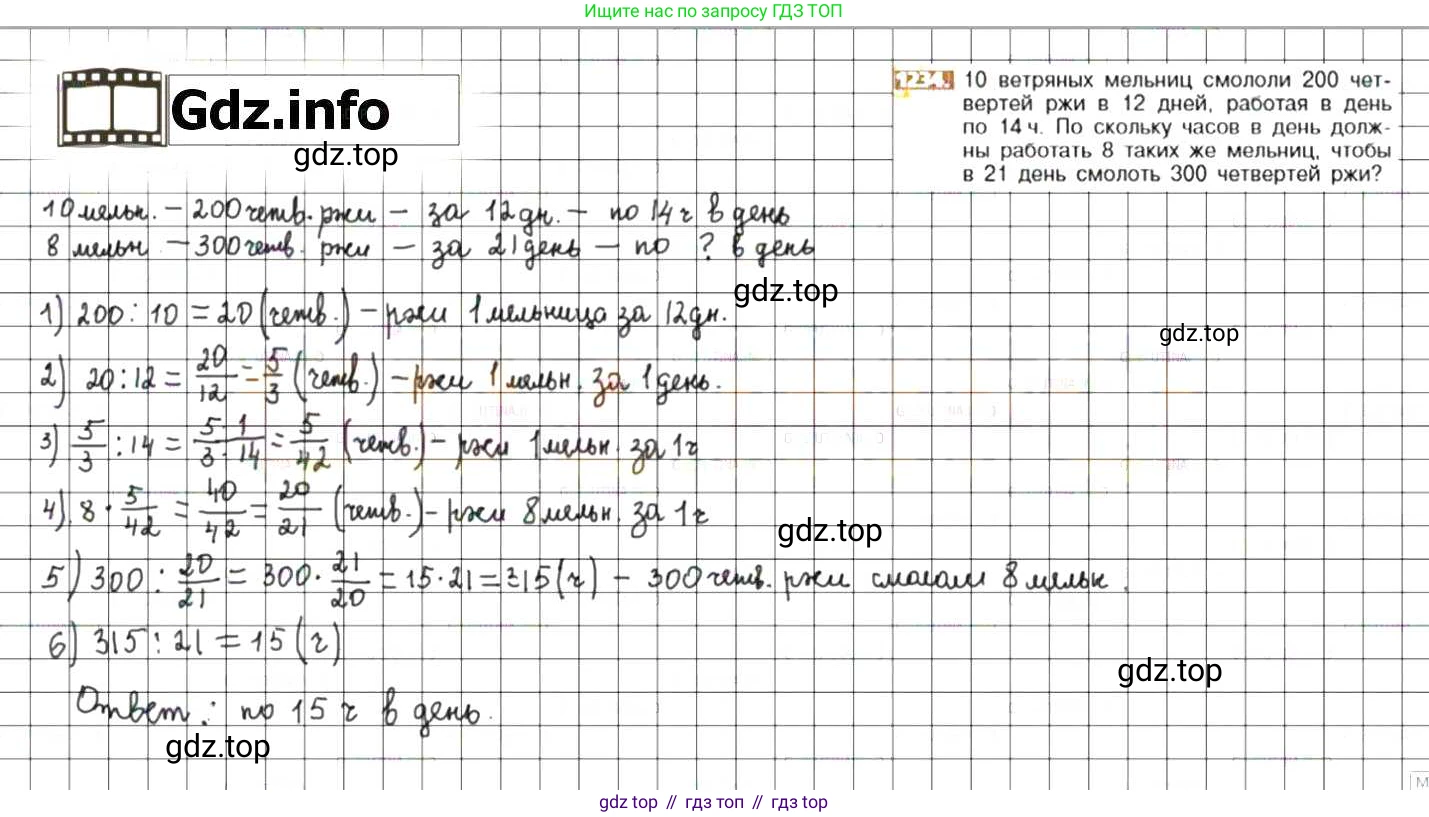 Ищите нас по запросу ГДЗ ТОП
Gdz.info
gdz.top
1234. 10 ветряных мельниц смололи 200 чет-
вертей ржи в 12 дней, работая в день
по 14 ч. По скольку часов в день долж-
ны работать 8 таких же мельниц, чтобы
в 21 день смолоть 300 четвертей ржи?
10 мельн. – 200 четв. ржи – за 12 дн. – по 14 ч в день
8 мельн – 300 четв. ржи – за 21 день – по ? в день
gdz.top
1) 200 : 10 = 20 (четв.) – ржи 1 мельница за 12 дн.
gdz.top
2) 20 : 12 = 20/12 = 5/3 (четв.) – ржи 1 мельн. за 1 день.
3) 5/3 : 14 = 5·1/3·14 = 5/42 (четв.) – ржи 1 мельн. за 1 ч
4) 8 · 5/42 = 40/42 = 20/21 (четв.) – ржи 8 мельн. за 1 ч
gdz.top
5) 300 : 20/21 = 300 · 21/20 = 15 · 21 = 315 (ч) – 300 четв. ржи смололи 8 мельн.
6) 315 : 21 = 15 (ч)
gdz.top
Ответ: по 15 ч в день.
gdz.top
gdz top // гдз топ // gdz top